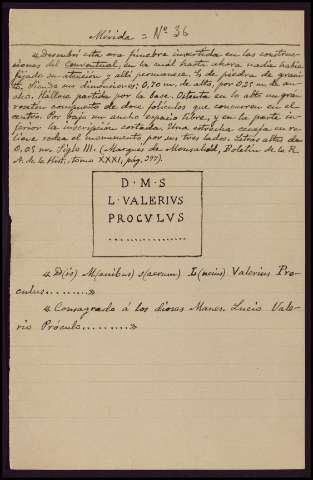 Mérida = Nº 36
"Descubrí esta ara funebre invertida en las construc-
ciones del Conventual, en la cuál hasta ahora nadie había
fijado su atención y allí permanece. Es de piedra de grani-
to, siendo sus dimensiones; 0,70 m. de alto, por 0,25 m. de an-
cho. Hállase partida por la base. Ostenta en lo alto un gran
rosetón compuesto de doce foliculos que concurren en el
centro. Por bajo un ancho espacio libre, y en la parte in-
ferior la inscripción cortada. Una estrecha cenefa en re-
lieve rodea el monumento por sus tres lados. Letras altas de
0,05 m. Siglo III. (Marqués de Monsalud, Boletin de la R.
A. de la Hist, tomo XXXI, pág,
D · M · S
L · VALERIVS
PROCVLVS
..............
"D(is) M(anibus) s(acrum) L(ucius) Valerius Pro-
culus........"
"Consagrado á los dioses Manes. Lucio Vale-
rio Próculo........."